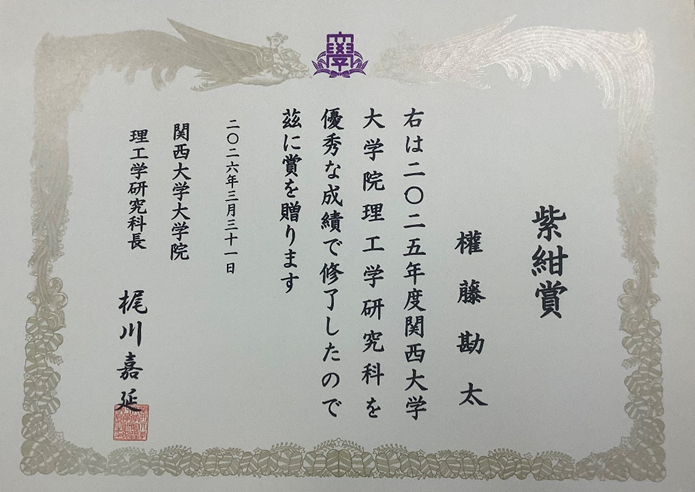 紫紺賞
權藤勘太
右は二〇二五年度関西大学
大学院理工学研究科を
優秀な成績で修了したので
茲に賞を贈ります
二〇二六年三月三十一日
関西大学大学院
理工学研究科長
梶川嘉延